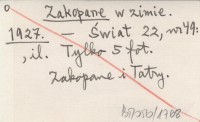 Zakopane w zimie.
1927. — Świat 22, nr 49:
, il. Tylko 5 fot.
Zakopane i Tatry.
/1968